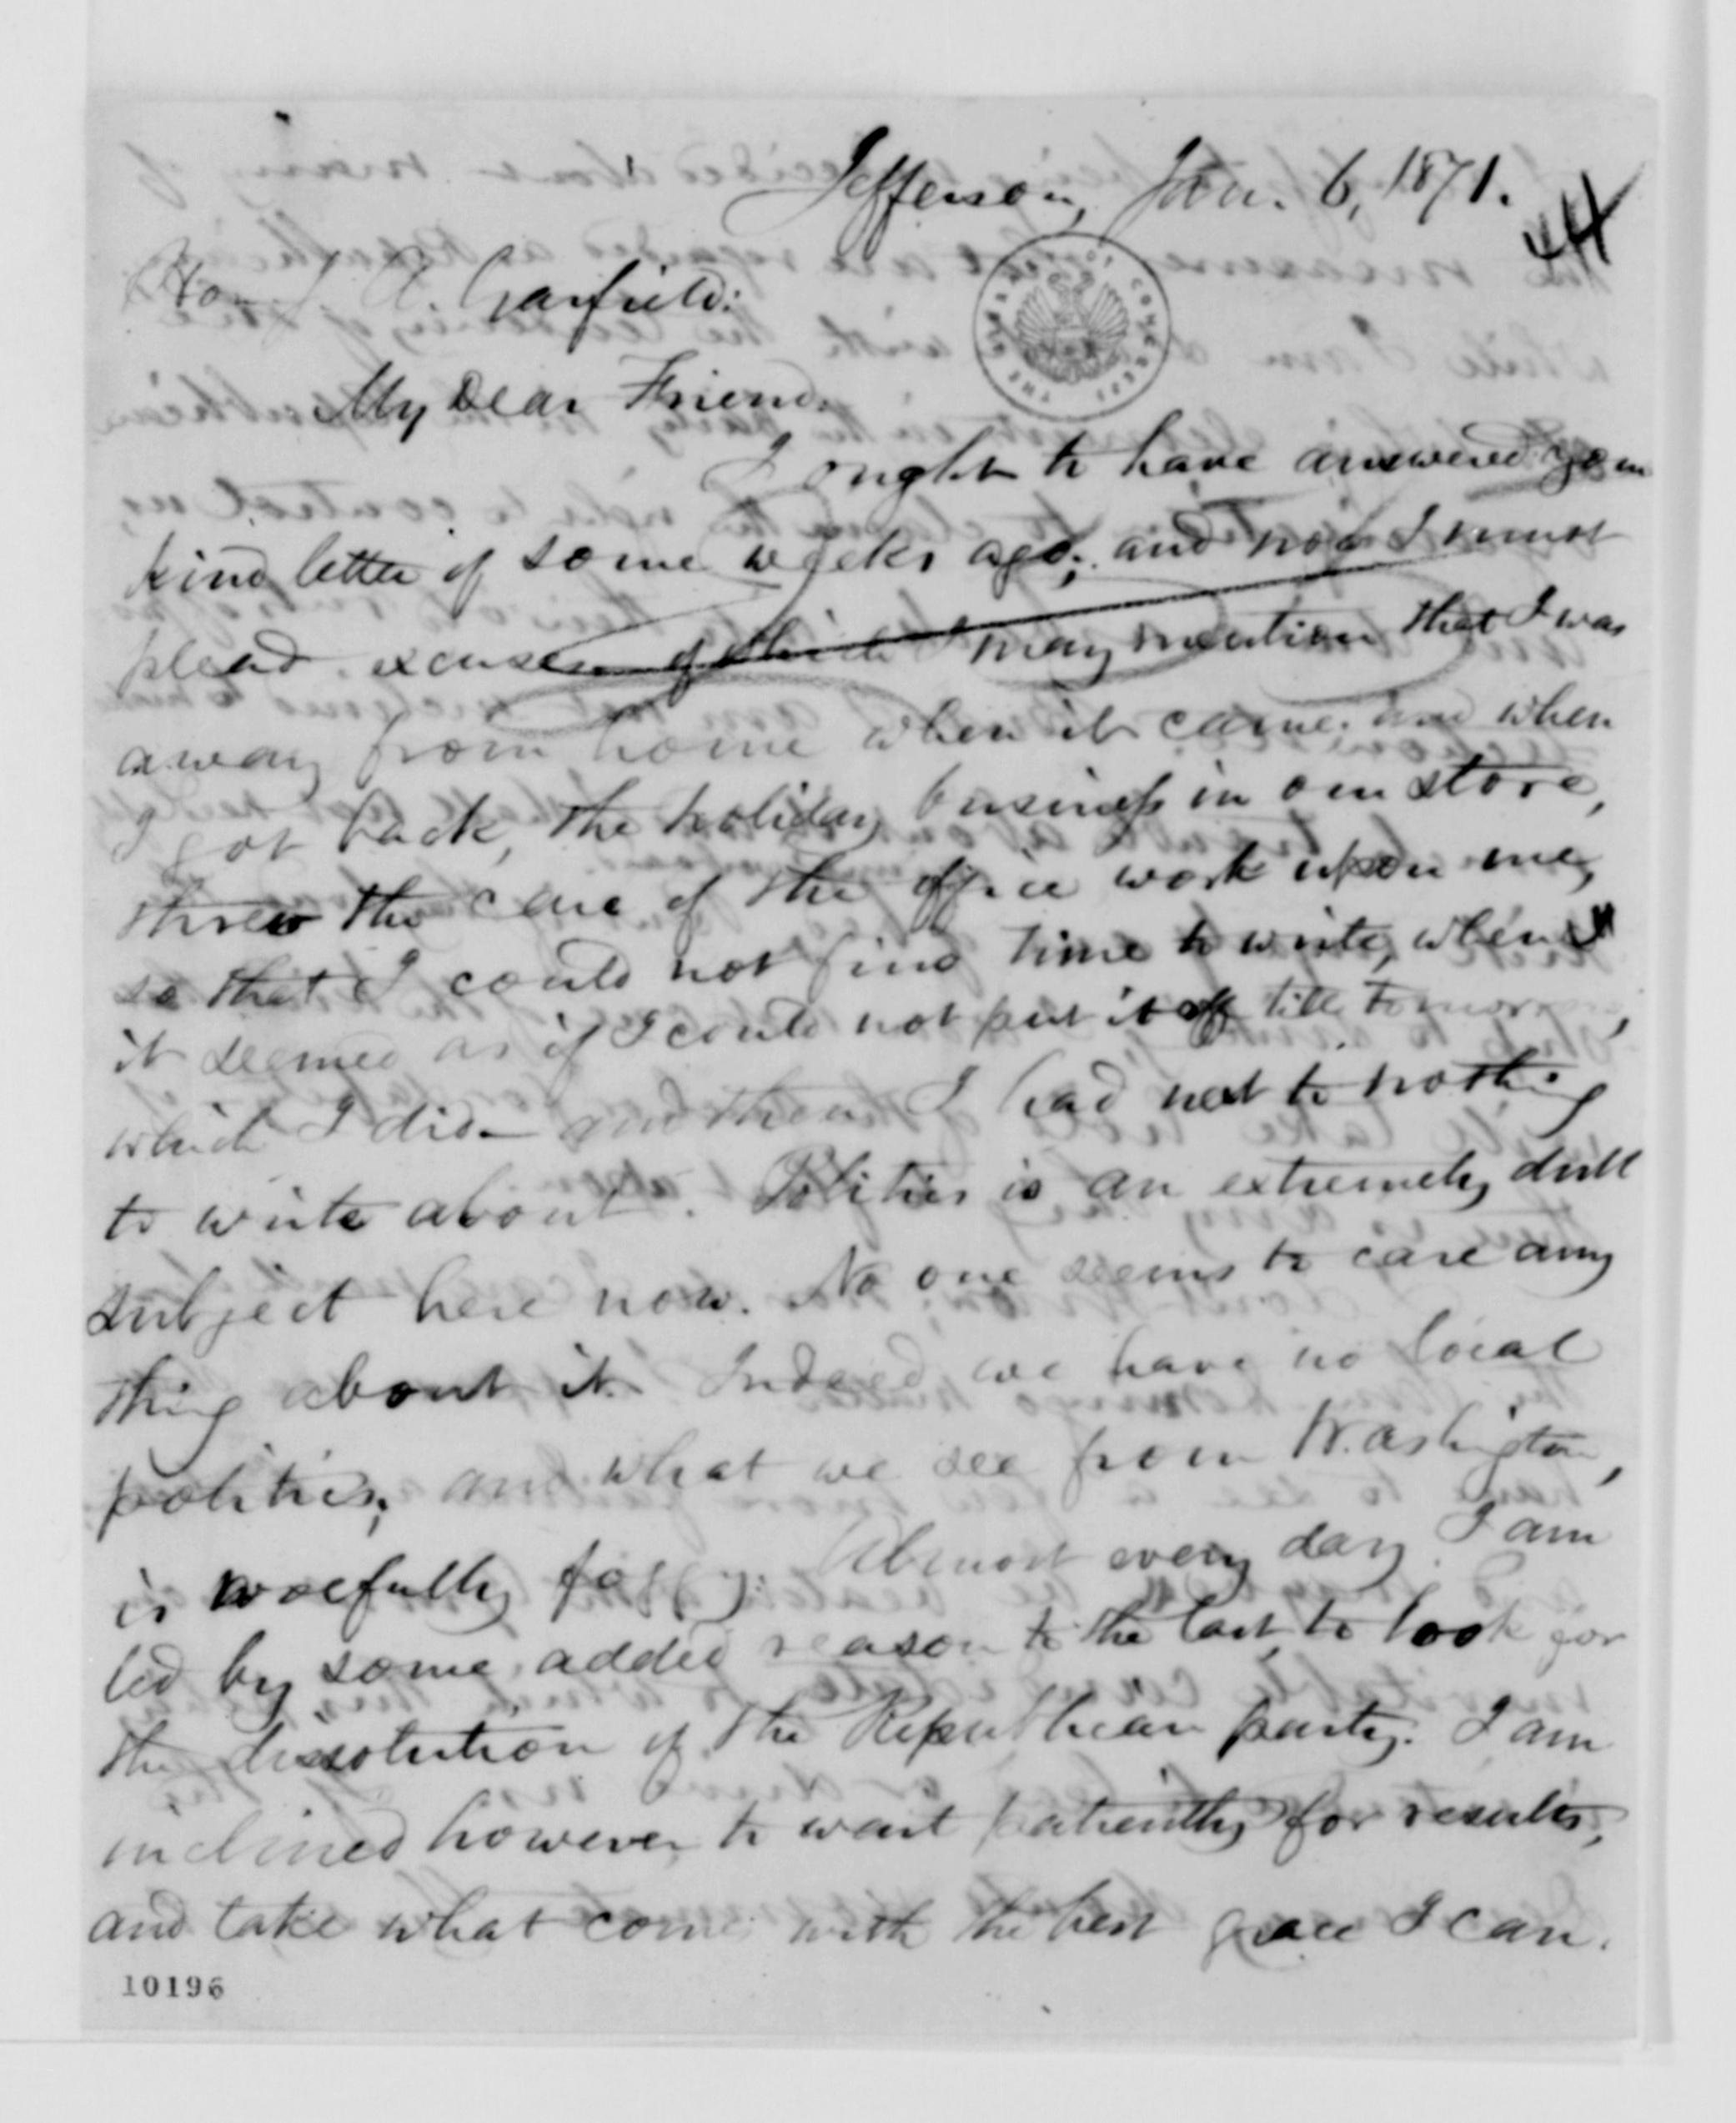 Jefferson, Jan. 6, 1871.
44
Hon J. A. Garfield:
My Dear Friend,
I ought to have answered your
kind letter of some weeks ago; and now I must
plead excuses of which I may mention that I was
away from home when it came. and when
I got back, the holiday business in our store,
threw the care of the office work upon me,
so that I could not find time to write, when
it seemed as if I could not put it off till tomorrow,
which I did— and then I had next to nothing
to write about. Politics is an extremely dull
subject here now. No one seems to care any
thing about it. Indeed we have no local
politics; and what we see from Washington,
is woefully foggy. Almost every day I am
led by some added reason to the last, to look for
the dissolution of the Republican party. I am
inclined however to wait patiently for results,
and take what comes with the best grace I can.
THE LIBRARY OF CONGRESS
10196